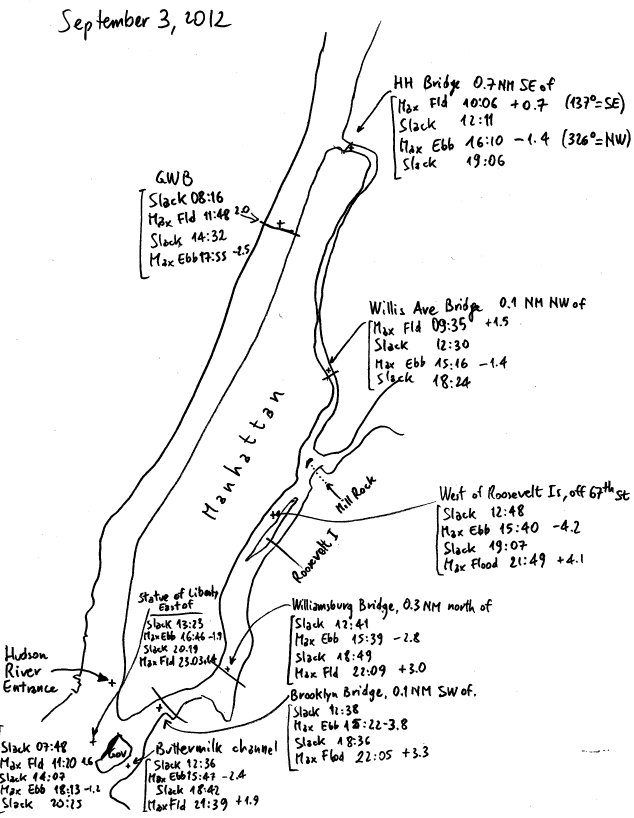 September 3, 2012
HH Bridge 0.7 NM SE of
Max Fld 10:06 +0.7 (137°=SE)
Slack 12:11
Max Ebb 16:10 -1.4 (326°=NW)
Slack 19:06
GWB
Slack 08:16
Max Fld 11:48 2.0
Slack 14:32
Max Ebb 17:55 -2.5
Willis Ave Bridge 0.1 NM NW of
Max Fld 09:35 +1.5
Slack 12:30
Max Ebb 15:16 -1.4
Slack 18:24
Manhattan
Mill Rock
Roosevelt I
West of Roosevelt Is, off 67th St
Slack 12:48
Max Ebb 15:40 -4.2
Slack 19:07
Max Flood 21:49 +4.1
Statue of Liberty
East of
Slack 13:23
Max Ebb 16:46 -1.9
Slack 20:19
Max Fld 23:03
Williamsburg Bridge, 0.3 NM north of
Slack 12:41
Max Ebb 15:39 -2.8
Slack 18:49
Max Fld 22:09 +3.0
Hudson
River
Entrance
Brooklyn Bridge, 0.1 NM SW of.
Slack 12:38
Max Ebb 15:22 -3.8
Slack 18:36
Max Flood 22:05 +3.3
Gov
Slack 07:48
Max Fld 11:20 1.6
Slack 14:07
Max Ebb 18:13 -1.2
Slack 20:25
Buttermilk channel
Slack 12:36
Max Ebb 15:47 -2.4
Slack 18:42
Max Fld 21:39 +1.9